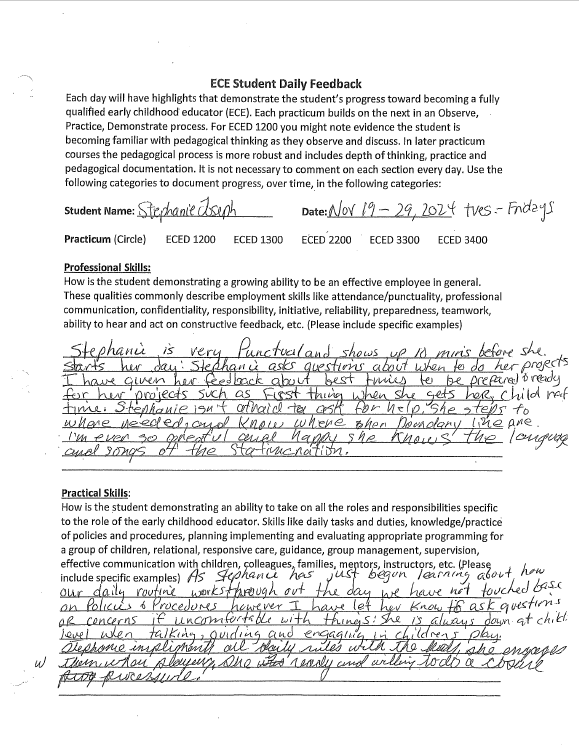 ECE Student Daily Feedback
Each day will have highlights that demonstrate the student's progress toward becoming a fully
qualified early childhood educator (ECE). Each practicum builds on the next in an Observe,
Practice, Demonstrate process. For ECED 1200 you might note evidence the student is
becoming familiar with pedagogical thinking as they observe and discuss. In later practicum
courses the pedagogical process is more robust and includes depth of thinking, practice and
pedagogical documentation. It is not necessary to comment on each section every day. Use the
following categories to document progress, over time, in the following categories:
Student Name: Stephanie Joseph Date: Nov 19 - 29, 2024 tves - Fridays
Practicum (Circle) ECED 1200 ECED 1300 ECED 2200 ECED 3300 ECED 3400
Professional Skills:
How is the student demonstrating a growing ability to be an effective employee in general.
These qualities commonly describe employment skills like attendance/punctuality, professional
communication, confidentiality, responsibility, initiative, reliability, preparedness, teamwork,
ability to hear and act on constructive feedback, etc. (Please include specific examples)
Stephanie is very Punctual and shows up 10 mins before she
starts her day. Stephanie asks questions about when to do her projects
I have given her feedback about best times to be prepared & ready
for her projects such as First thing when she gets here, child
time. Stephanie isn't afraid to ask for help. She steps to
where needed, and know where when boundary line are.
I'm ever so greatful and happy she knows the language
and songs of the
Practical Skills:
How is the student demonstrating an ability to take on all the roles and responsibilities specific
to the role of the early childhood educator. Skills like daily tasks and duties, knowledge/practice
of policies and procedures, planning implementing and evaluating appropriate programming for
a group of children, relational, responsive care, guidance, group management, supervision,
effective communication with children, colleagues, families, mentors, instructors, etc. (Please
include specific examples) As Stephanie has just begun learning about how
our daily routine works through out the day we have not touched base
on Policies & Procedures however I have let her know to ask questions
or concerns if uncomfortable with things. She is always down at child
level when talking, guiding and engaging in childrens play.
Stephanie impliments all daily rules with the kids, she engages
w them when playing, she ready and willing to do a